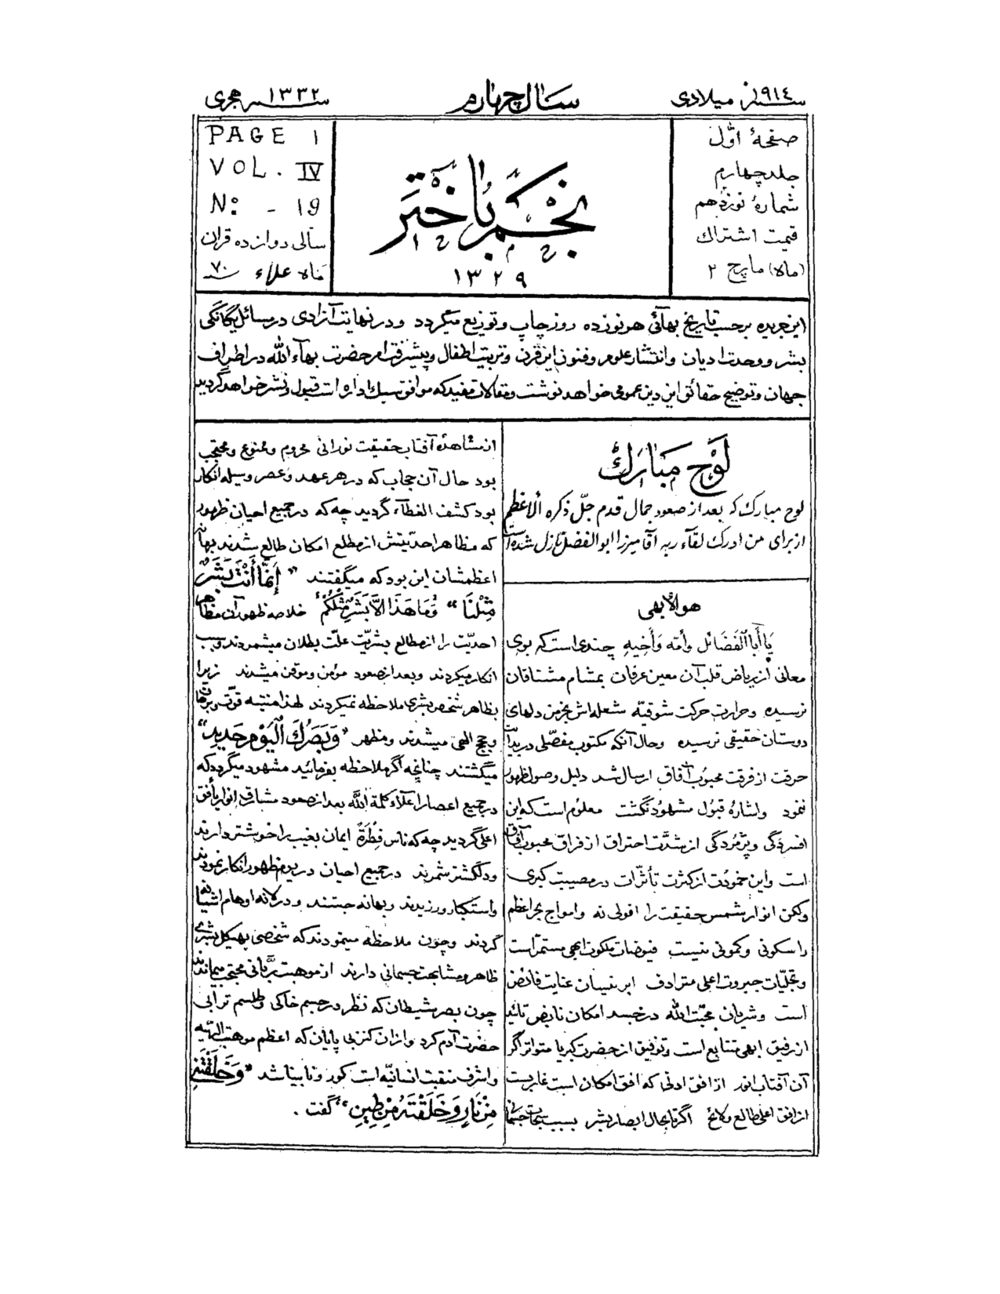 سنه ١٩١٤ میلادی
سال چهارم
سنه ١٣٣٢ هجری
صفحهٔ اوّل
جلد چهارم
شمارهٔ نوزدهم
قیمت اشتراک
(ماه) مارچ ٢
نجم باختر
١٣٢٩
PAGE 1
VOL. IV
Nº - 19
سالی دوازده قران
ماه علاء سنه ٧٠
این جریده برحسب تاریخ بهائی هر نوزده روز چاپ و توزیع میگردد و در نهایت آزادی در مسائل یگانگی
بشر و وحدت ادیان و انتشار علوم و فنون این قرن و تربیت اطفال و پیشرفت امر حضرت بهآء الله در اطراف
جهان و توضیح حقائق این دین عمومی خواهد نوشت و مقالات مفیده که موافق سبک اداره است قبول و نشر خواهد گردید
لوح مبارک
لوح مبارک که بعد از صعود جمال قدم جلّ ذکره الاعظم
از برای من ادرک لقاء ربه آقا میرزا ابوالفضل نازل شده است
هوالابهی
یا أبا الفضائل و أمّه و أخیه چندی است که بوی
معانی از ریاض قلب آن معین عرفان بمشام مشتاقان
نرسیده و حرارت حرکت شوقیّه شعله‌اش بخرمن دلهای
دوستان حقیقی نرسیده و حال آنکه مکتوب مفصّلی در بدایت
حرقت از فرقت محبوب آفاق ارسال شد دلیل وصول ظهور
ننمود و اشاره قبول مشهود نگشت معلوم است که این
افسردگی و پژمردگی از شدّت احتراق از فراق محبوب آفاق
است و این خمودت از کثرت تأثّرات در مصیبت کبری
ولکن انوار شمس حقیقت را افولی نه و امواج بحر اعظم
را سکونی و کمونی نیست فیوضات ملکوت ابهی مستمرّ است
و تجلیّات جبروت اعلی مترادف ابر نیسان عنایت فائض
است و شریان محبّت الله در جسد امکان نابض تائید
از رفیق ابهی متتابع است و توفیق از حضرت کبریا متواتر اگر
آن آفتاب انور از افق ادنی که افق امکان است غایب است
از افق اعلی طالع و لائح اگر تا بحال ابصار بشر بسبب سبحات جسمانی
از مشاهدهٔ آفتاب حقیقت نورانی محروم و ممنوع و محتجب
بود حال آن حجاب که در هر عهد و عصر وسیله انکار
بود کشف الغطآء گردید چه که در جمیع احیان ظهور
که مظاهر احدیّتش از مطلع امکان طالع شدند بهانهٔ
اعظمشان این بود که میگفتند "إنّما أنت بشرٌ
مثلنا" "و ما هذا الّا بشر مثلکم" خلاصه ظهور آن مظاهر
احدیّت را از مطالع بشریّت علّت بطلان میشمردند و سبب
انکار میکردند و بعد از صعود مؤمن و موقن میشدند زیرا
بظاهر شخص بشری ملاحظه نمیکردند لهذا متنبّه قوّت و برهان
و حجج الهی میشدند و مظهر "و بصرک الیوم حدید"
میگشتند چنانچه اگر ملاحظه بفرمائید مشهود میگردد که
در جمیع اعصار اعلاء کلمة الله بعد از صعود مشارق انوار بأفق
اعلی گردید چه که ناس فطرةً ایمان بغیب را خوشتر دارند
و دلکشتر شمرند در جمیع احیان در یوم ظهور انکار نمودند
و استکبار ورزیدند و بهانه جستند و در لانه اوهام آشیانه
گردند و چون ملاحظه مینمودند که شخصی بهیکل بشری
ظاهر و مشابهت جسمانی دارند از موهبت ربّانی محتجب میماندند
چون بصر شیطان که نظر در جسم خاکی و طلسم ترابی
حضرت آدم کرد و از آن کنز بی پایان که اعظم موهبت الهیّه
و اشرف منقبت انسانیّه است کور و نابینا شد "و خلقتنی
من نارٍ و خلقته من طین" گفت .